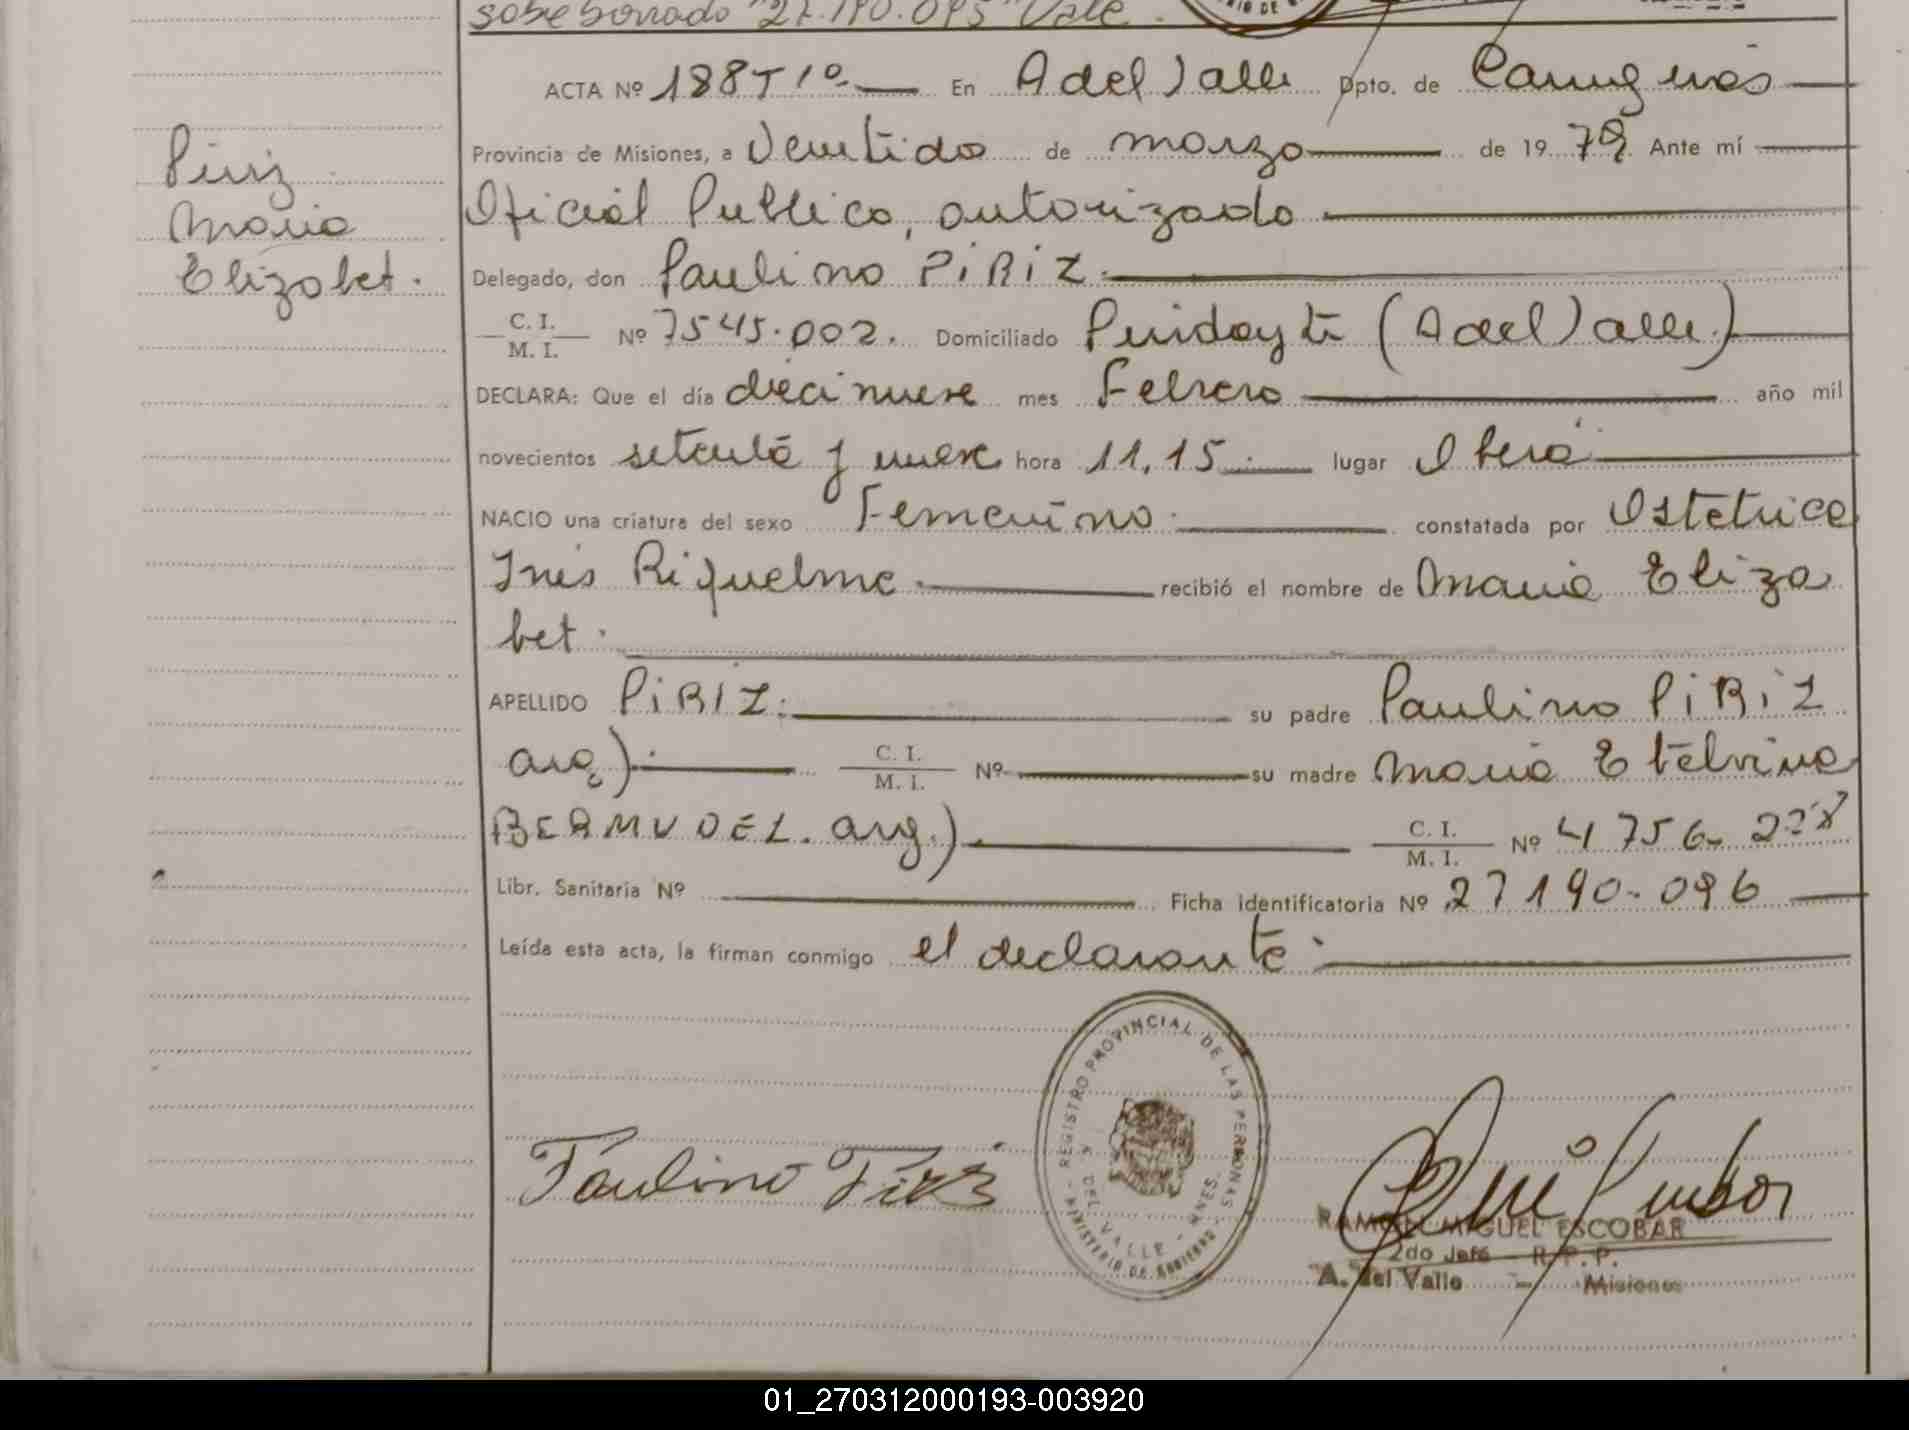 sobeborrado "27.190.095" Vale.
ACTA Nº 188 T 1º En A del Valle Dpto. de Cainguás
Provincia de Misiones, a veintidos de marzo de 1979 Ante mí
Oficial Publico, autorizado
Delegado, don Paulino PiRiZ.
C. I. / M. I. Nº 7545.002. Domiciliado Pindayti (A del Valle.)
DECLARA: Que el día diecinueve mes Febrero año mil
novecientos setenta y nueve hora 11,15. lugar Oberá
NACIO una criatura del sexo Femenino. constatada por Obstetrica
Inés Riquelme recibió el nombre de Maria Eliza
bet.
APELLIDO PiRIZ. su padre Paulino PiRiZ
arg.) C. I. / M. I. Nº su madre Maria Etelvina
BERMUDEZ. arg.) C. I. / M. I. Nº 4 756.
Libr. Sanitaria Nº Ficha identificatoria Nº 27 190.096
Leída esta acta, la firman conmigo el declarante.
Piriz
Maria
Elizabet.
REGISTRO PROVINCIAL DE LAS PERSONAS
MINISTERIO DE GOBIERNO
A. DEL VALLE - MNES.
Paulino Piriz
RAMON MIGUEL ESCOBAR
2do Jefe - R. P. P.
A. del Valle - Misiones
01_270312000193-003920